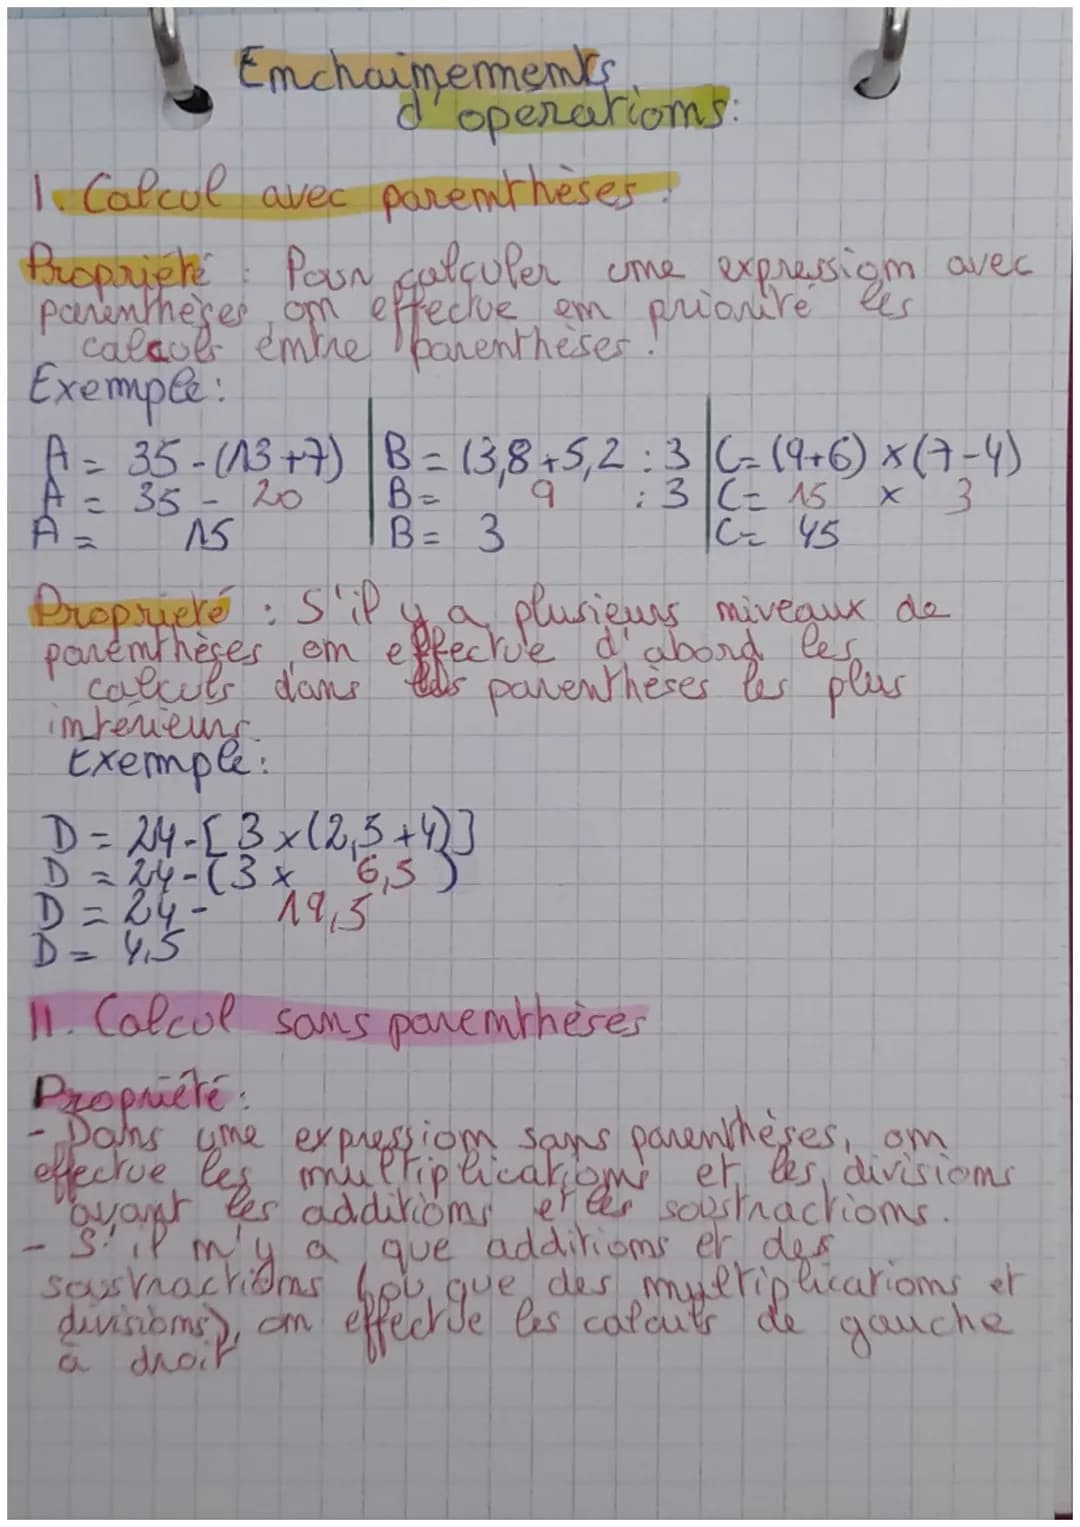 Enchainements
d'operations:
I. Calcul avec parenthèses:
Propriété : Pour calculer une expression avec
parenthèses, on effectue en priorité les
calculs entre parenthèses.
Exemple:
A = 35-(13+7) | B = (3,8+5,2 : 3 | C= (9+6) ×(7-4)
A = 35 - 20 | B= 9 : 3 | C= 15 × 3
A = 15 | B= 3 | C= 45
Propriété : S'il y a plusieurs niveaux de
parenthèses, on effectue d'abord les
calculs dans les parenthèses les plus
intérieurs.
Exemple:
D = 24-[3×(2,5+4)]
D = 24-(3× 6,5)
D = 24 - 19,5
D = 4,5
II. Calcul sans parenthèses
Propriété:
- Dans une expression sans parenthèses, on
effectue les multiplications et les divisions
avant les additions et les soustractions.
- S'il n'y a que additions et des
soustractions (ou que des multiplications et
divisions), on effectue les calculs de gauche
à droit